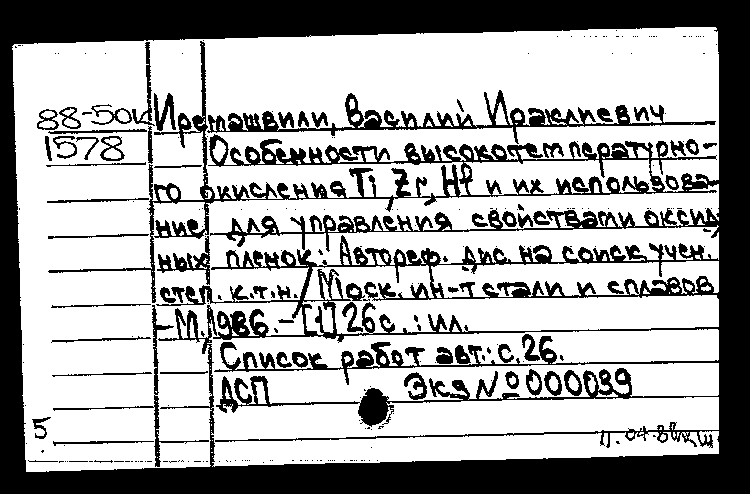 88-50к Иремашвили, Василий Ираклиевич
1578 Особенности высокотемпературно-
го окисления Ti, Zr, Hf и их использова-
ние для управления свойствами оксид-
ных пленок : Автореф. дис. на соиск. учен.
степ. к.т.н. / Моск. ин-т стали и сплавов
-М., 1986. - [1], 26 с. : ил.
Список работ авт.: с. 26.
ДСП Экз № 000039
5